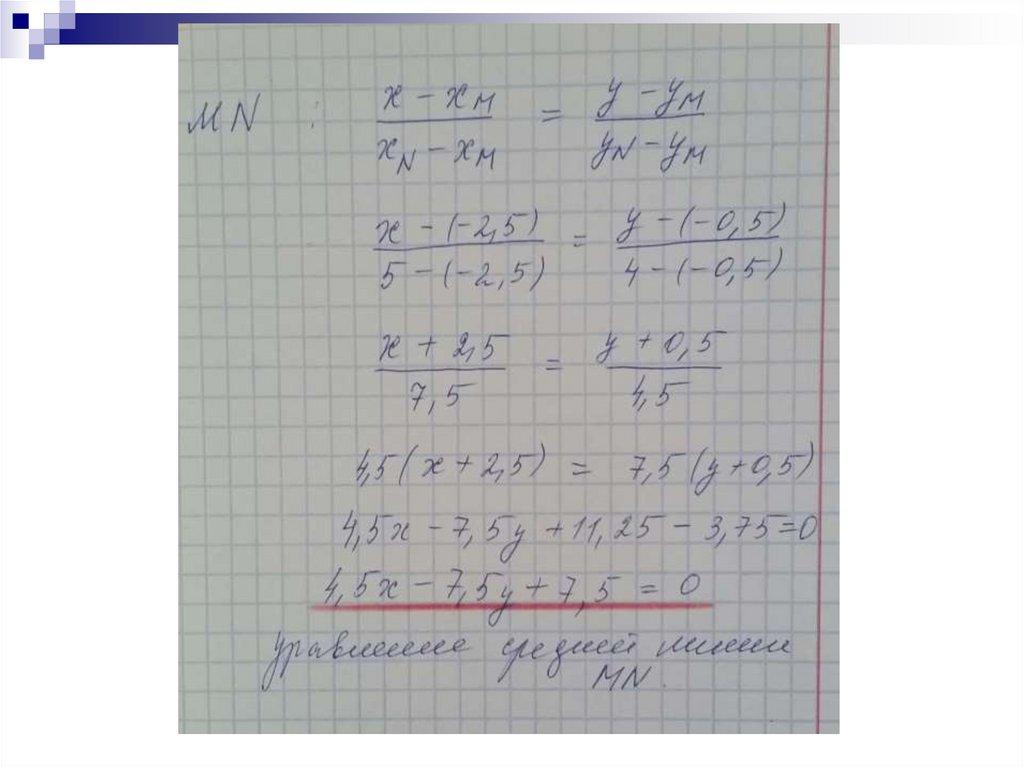 MN : (x - x_M)/(x_N - x_M) = (y - y_M)/(y_N - y_M)
(x - (-2,5))/(5 - (-2,5)) = (y - (-0,5))/(4 - (-0,5))
(x + 2,5)/7,5 = (y + 0,5)/4,5
4,5(x + 2,5) = 7,5(y + 0,5)
4,5x - 7,5y + 11,25 - 3,75 = 0
4,5x - 7,5y + 7,5 = 0
уравнение средней линии
MN.